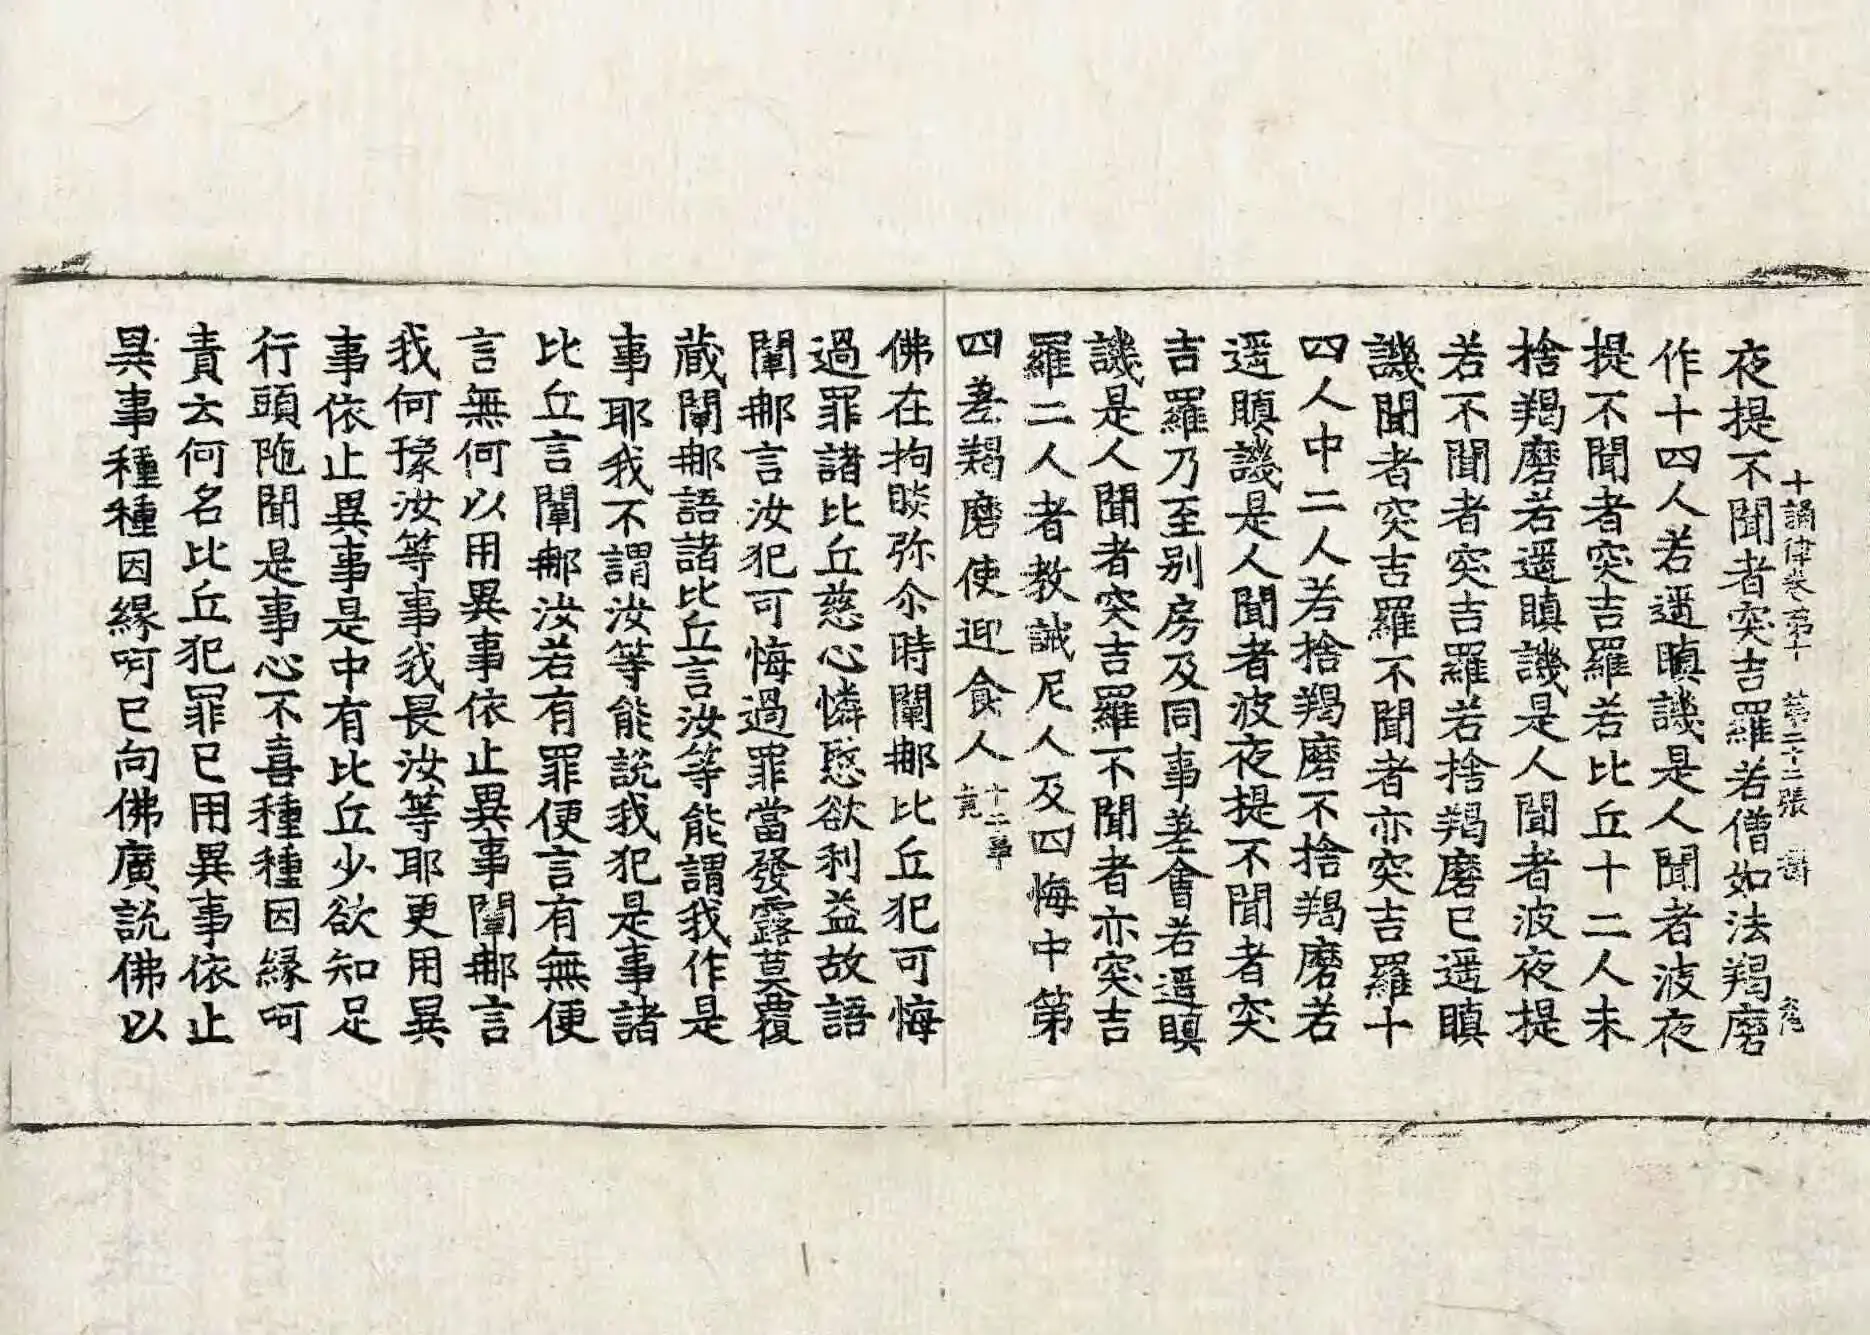 十誦律卷第十 第二十二張
夜提不聞者突吉羅若僧如法羯磨
作十四人若遥瞋譏是人聞者波夜
提不聞者突吉羅若比丘十二人未
捨羯磨若遥瞋譏是人聞者波夜提
若不聞者突吉羅若捨羯磨已遥瞋
譏聞者突吉羅不聞者亦突吉羅十
四人中二人若捨羯磨不捨羯磨若
遥瞋譏是人聞者波夜提不聞者突
吉羅乃至别房及同事差會若遥瞋
譏是人聞者突吉羅不聞者亦突吉
羅二人者教誡尼人及四悔中第
四差羯磨使迎食人十二事竟
佛在拘睒弥尒時闡那比丘犯可悔
過罪諸比丘慈心憐愍欲利益故語
闡那言汝犯可悔過罪當發露莫覆
藏闡那語諸比丘言汝等能謂我作是
事耶我不謂汝等能說我犯是事諸
比丘言闡那汝若有罪便言有無便
言無何以用異事依止異事闡那言
我何豫汝等事我畏汝等耶更用異
事依止異事是中有比丘少欲知足
行頭陁聞是事心不喜種種因緣呵
責云何名比丘犯罪已用異事依止
異事種種因緣呵已向佛廣說佛以